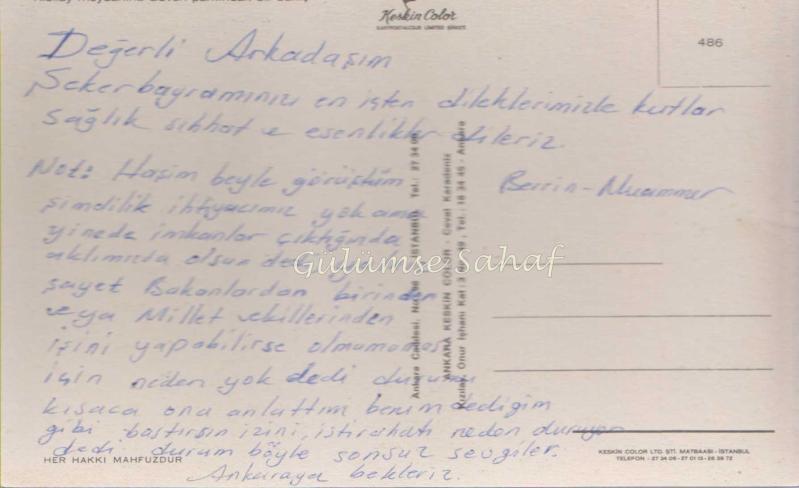 Keskin Color
KARTPOSTALCILIK LİMİTED ŞİRKETİ
486
Değerli Arkadaşım
Şeker bayramınızı en içten dileklerimizle kutlar
sağlık sıhhat ve esenlikler dileriz.
Berrin-Muammer
Not: Haşim beyle görüştüm
şimdilik ihtiyacımız yok ama
yinede imkanlar çıktığında
aklımızta olsun dedi
şayet Bakanlardan birinden
veya Millet vekillerinden
işini yapabilirse olmaması
için neden yok dedi durumu
kısaca ona anlattım benim dediğim
gibi bastırsın izini, istirahatı neden duruyor
dedi. durum böyle sonsuz sevgiler.
Ankaraya bekleriz.
Gülümse Sahaf
Ankara Caddesi, No: İSTANBUL Tel.: 27 34 09
ANKARA KESKİN COLOR - Cevat Karadeniz
Kızılay Onur İşhanı Kat: 3 Tel.: 18 34 45 - Ankara
HER HAKKI MAHFUZDUR
KESKİN COLOR LTD. ŞTİ. MATBAASI - İSTANBUL
TELEFON - 27 34 09 - 27 01 13 - 26 39 72